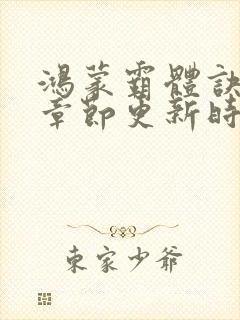 鴻蒙霸體訣
章節更新時
東家少爺